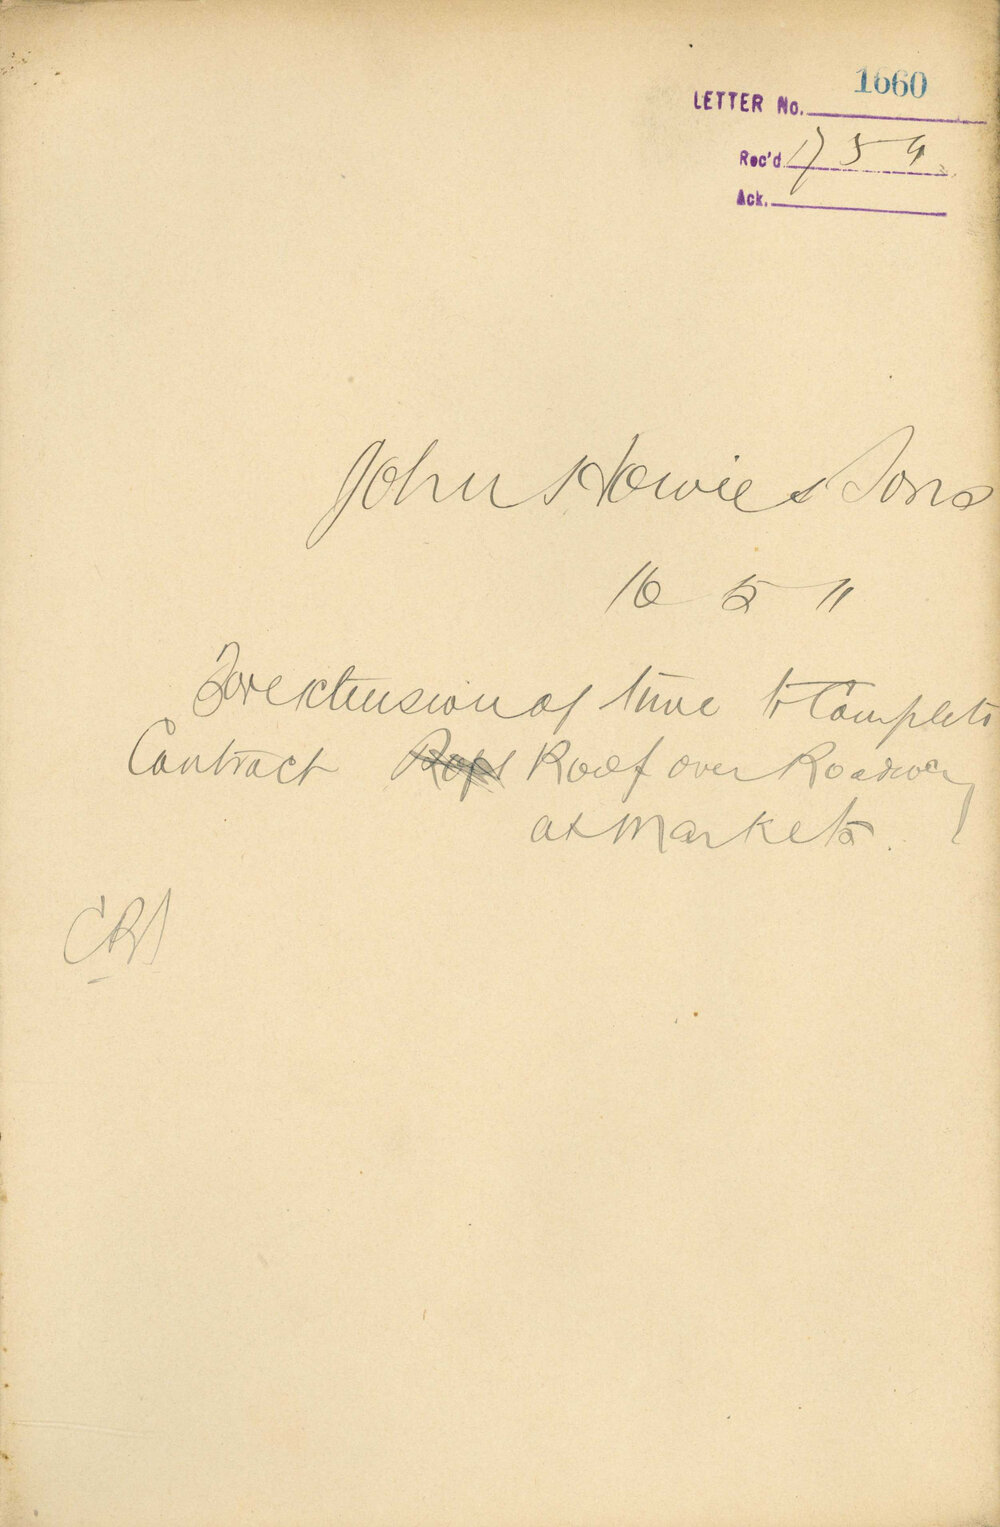 1660
LETTER No.
Rec'd 17 5
Ack.
John Howie & Sons
16 5 11
For extension of time to Complete
Contract Roof over Roadway
at Markets.